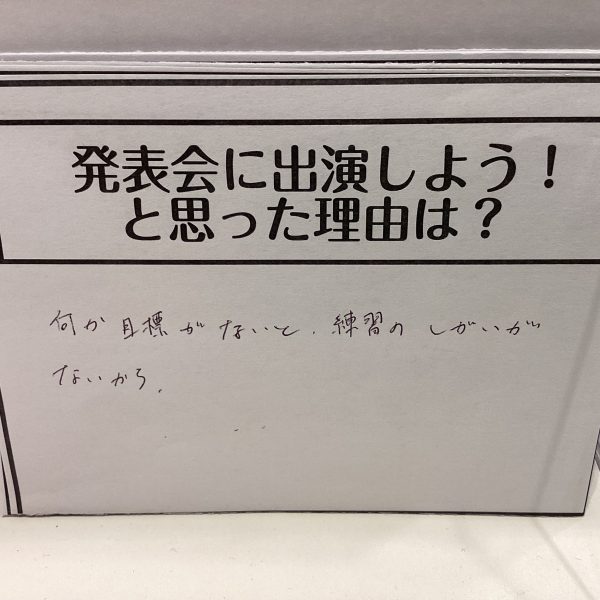 発表会に出演しよう！
と思った理由は？
何か目標がないと、練習の しがいが
ないから.